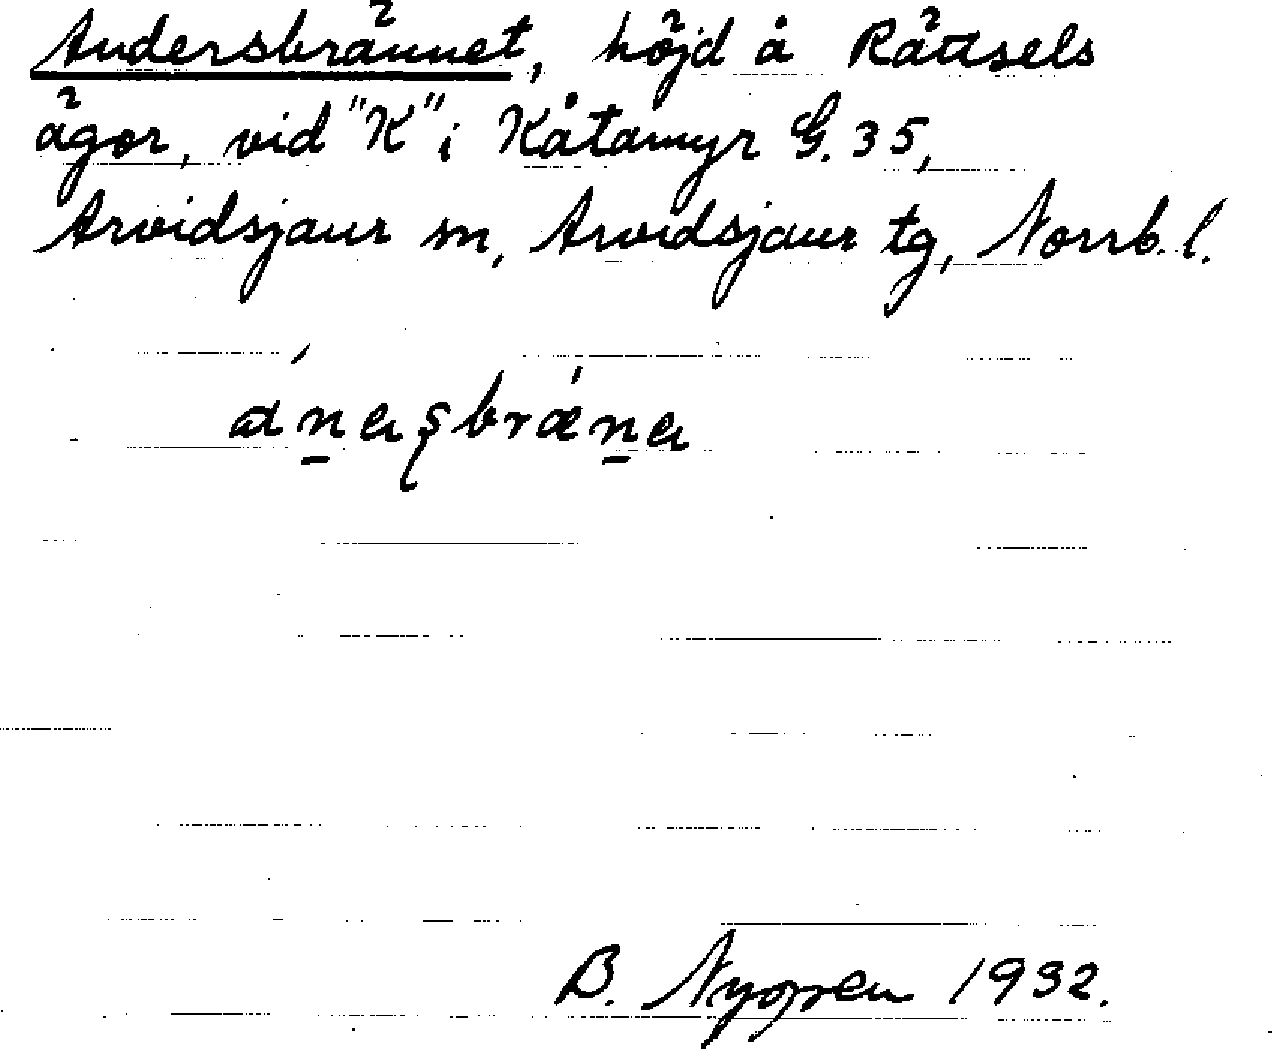 Andersbrännet, höjd å Rättsels
ägor, vid "K" i Kåtamyr G. 35,
Arvidsjaur sn, Arvidsjaur tg, Norrb. l.
B. Nygren 1932.